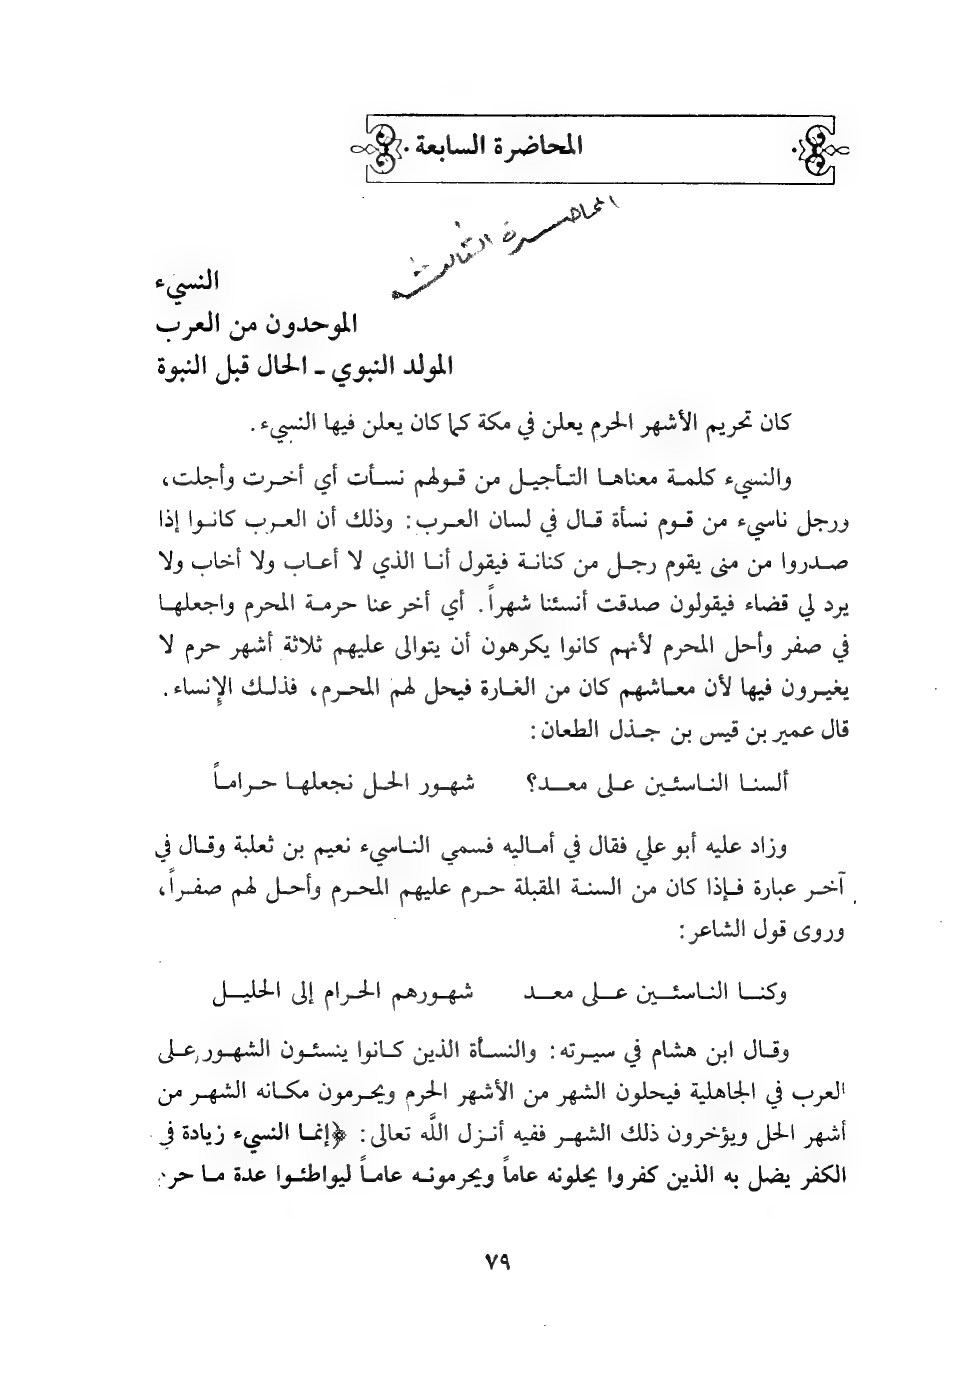 المحاضرة السابعة
المحاضرة الثالثة
النسيء
الموحدون من العرب
المولد النبوي ـ الحال قبل النبوة
كان تحريم الأشهر الحرم يعلن في مكة كما كان يعلن فيها النسيء.
والنسيء كلمة معناها التأجيل من قولهم نسأت أي أخرت وأجلت،
ورجل ناسيء من قوم نسأة قال في لسان العرب: وذلك أن العرب كانوا إذا
صدروا من منى يقوم رجل من كنانة فيقول أنا الذي لا أعاب ولا أخاب ولا
يرد لي قضاء فيقولون صدقت أنسئنا شهراً. أي أخر عنا حرمة المحرم واجعلها
في صفر وأحل المحرم لأنهم كانوا يكرهون أن يتوالى عليهم ثلاثة أشهر حرم لا
يغيرون فيها لأن معاشهم كان من الغارة فيحل لهم المحرم، فذلك الإنساء.
قال عمير بن قيس بن جذل الطعان:
ألسنا الناسئين على معد؟ شهور الحل نجعلها حراماً
وزاد عليه أبو علي فقال في أماليه فسمي الناسيء نعيم بن ثعلبة وقال في
آخر عبارة فإذا كان من السنة المقبلة حرم عليهم المحرم وأحل لهم صفراً،
وروى قول الشاعر:
وكنا الناسئين على معد شهورهم الحرام إلى الحليل
وقال ابن هشام في سيرته: والنسأة الذين كانوا ينسئون الشهور على
العرب في الجاهلية فيحلون الشهر من الأشهر الحرم ويحرمون مكانه الشهر من
أشهر الحل ويؤخرون ذلك الشهر ففيه أنزل اللَّه تعالى: ﴿إنما النسيء زيادة في
الكفر يضل به الذين كفروا يحلونه عاماً ويحرمونه عاماً ليواطئوا عدة ما حر
٧٩